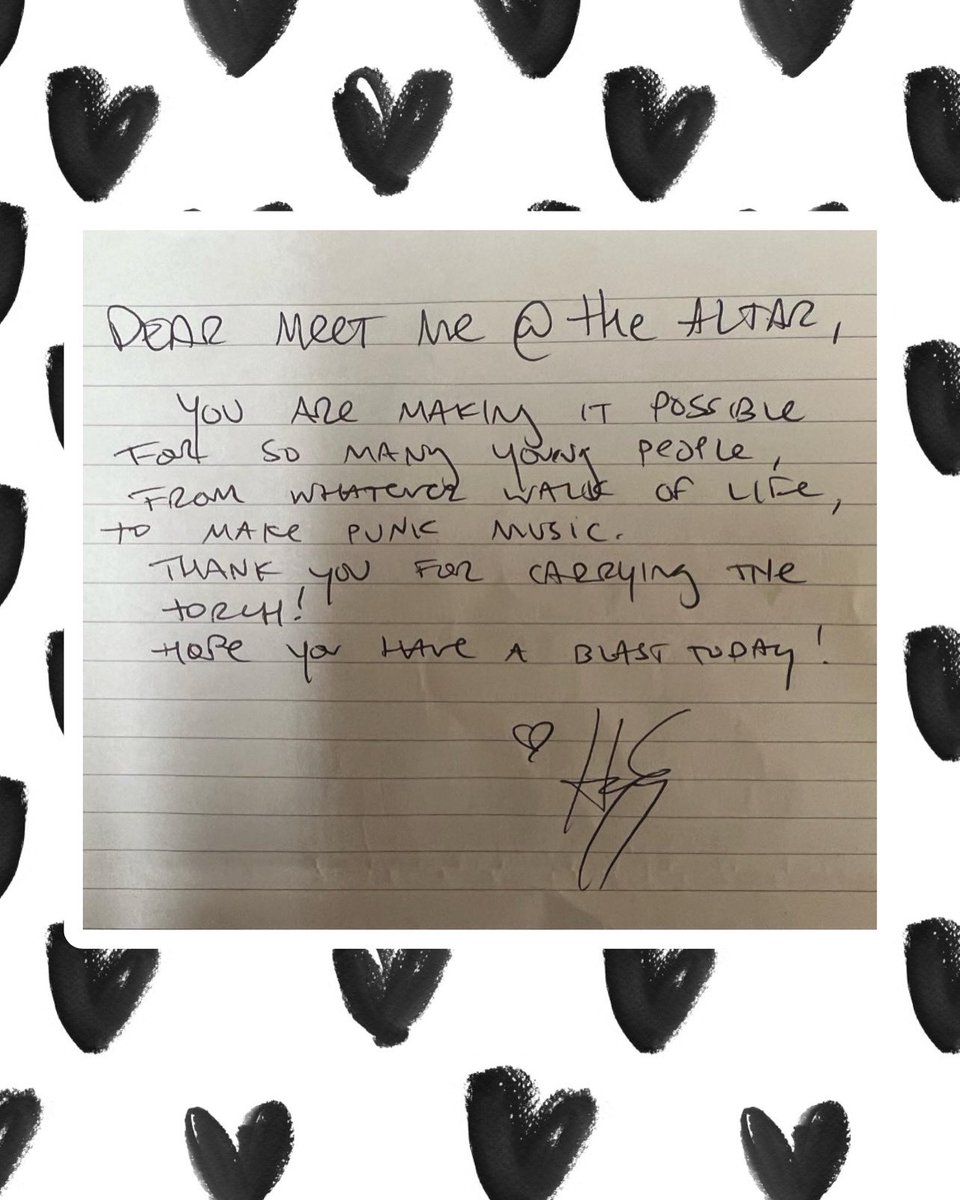 DEAR MEET Me @ the ALTAR,
YOU ARE MAKING IT POSSIBLE
FOR SO MANY YOUNG PEOPLE,
FROM WHATEVER WALK OF LIFE,
to MAKE PUNK MUSIC.
THANK YOU FOR CARRYING THE
TORCH!
HOPE YOU HAVE A BLAST TODAY!